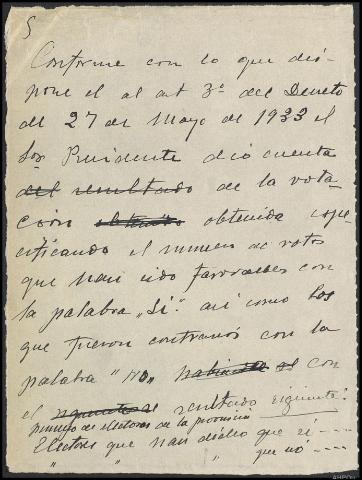 5
Conforme con lo que dis-
pone el al art 3º del Decreto
del 27 de Mayo de 1933 el
Sor Presidente dió cuenta
del resultado de la vota-
ción obtenida espe-
cificando el numero de votos
que han sido favorables con
la palabra "Si" asi como los
que fueron contrarios con la
palabra "no" con
el resultado siguiente:
numero de electores de la provincia
Electores que han dicho que si ----
" " que nó ----
AHPOu